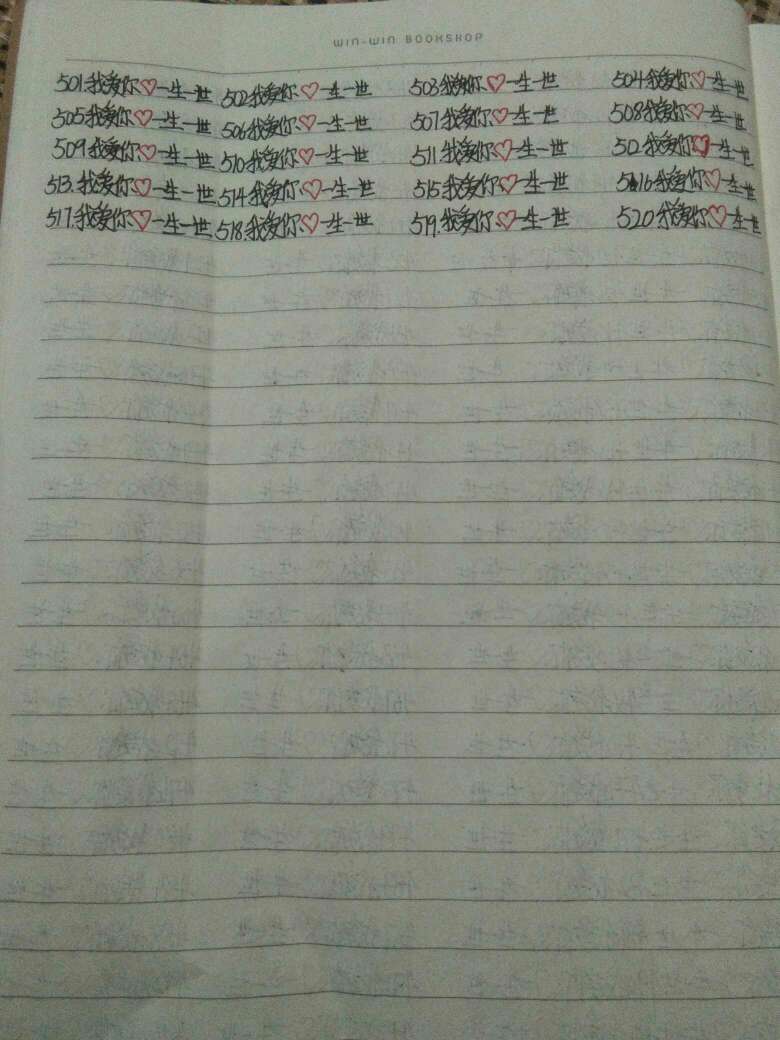 WIN-WIN BOOKSHOP
501.我爱你♡一生一世 502.我爱你♡一生一世 503.我爱你♡一生一世 504.我爱你♡一生一世
505.我爱你♡一生一世 506.我爱你♡一生一世 507.我爱你♡一生一世 508.我爱你♡一生一世
509.我爱你♡一生一世 510.我爱你♡一生一世 511.我爱你♡一生一世 512.我爱你♡一生一世
513.我爱你♡一生一世 514.我爱你♡一生一世 515.我爱你♡一生一世 516.我爱你♡一生一世
517.我爱你♡一生一世 518.我爱你♡一生一世 519.我爱你♡一生一世 520.我爱你♡一生一世